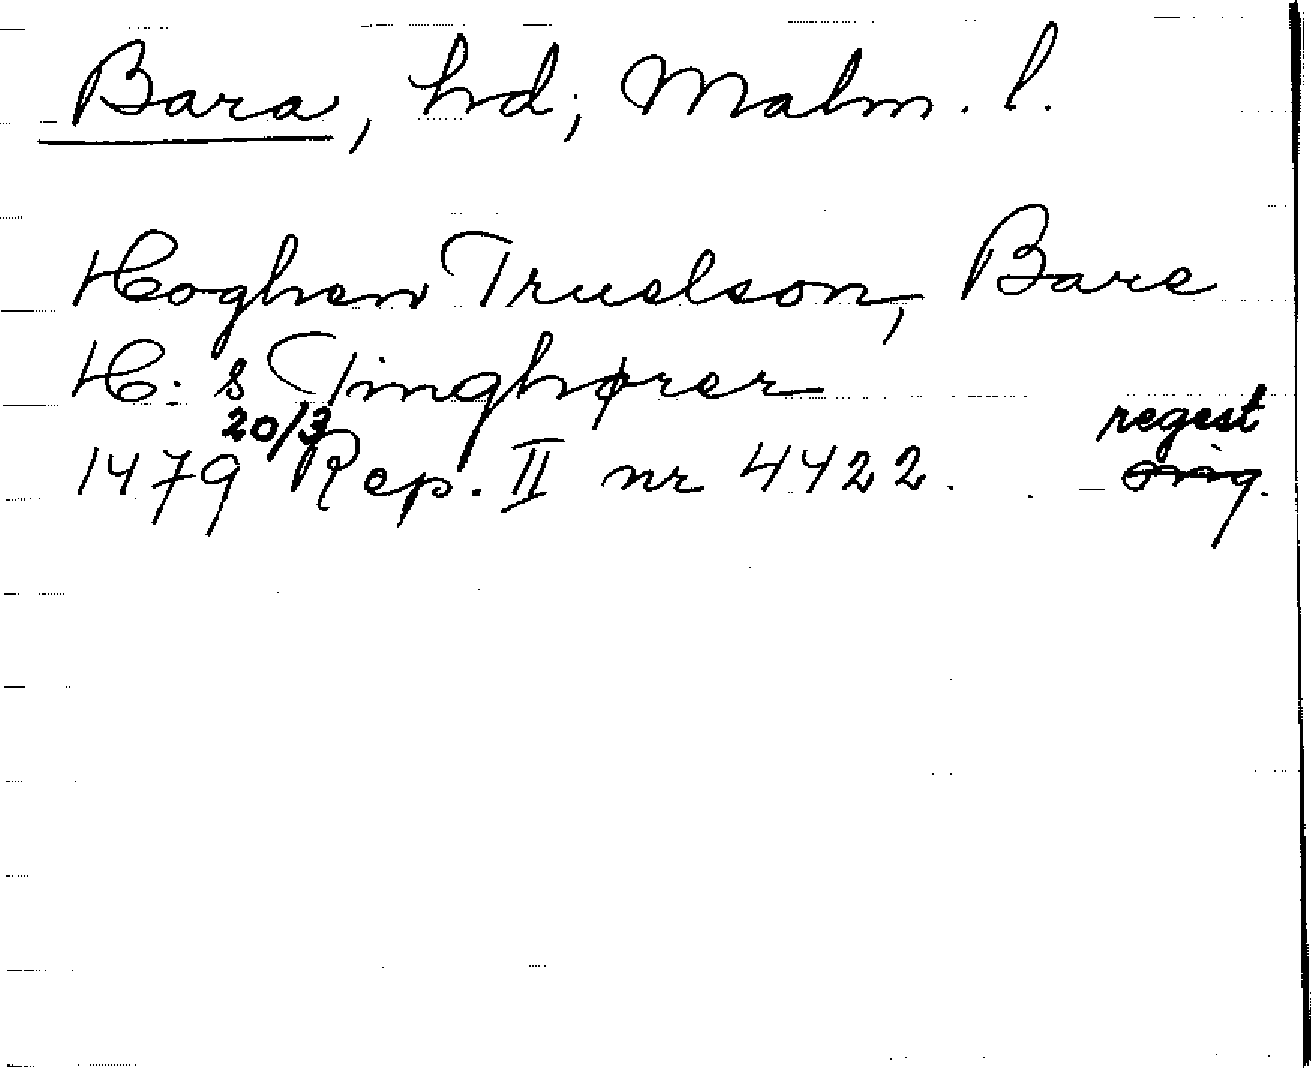 Bara, hd; Malm. l.
Hoghen Truelson, Bare
H: s Tinghører
20/3 regest
1479 Rep. II nr 4422. orig.